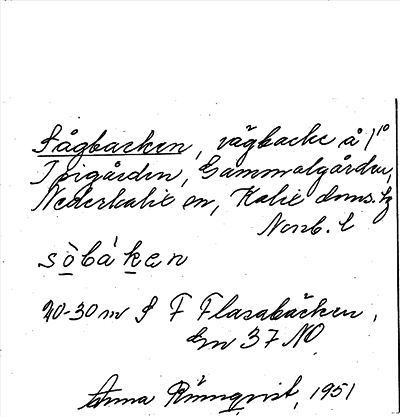 Sågbacken, vägbacke å 1¹⁰
Gammalgården,
Nederkalix sn, Kalix doms. hg
Norrb. l
sòbáken
20-30 m S F Flarabäcken,
Em 37 NO
Anna Rönnqvist, 1951